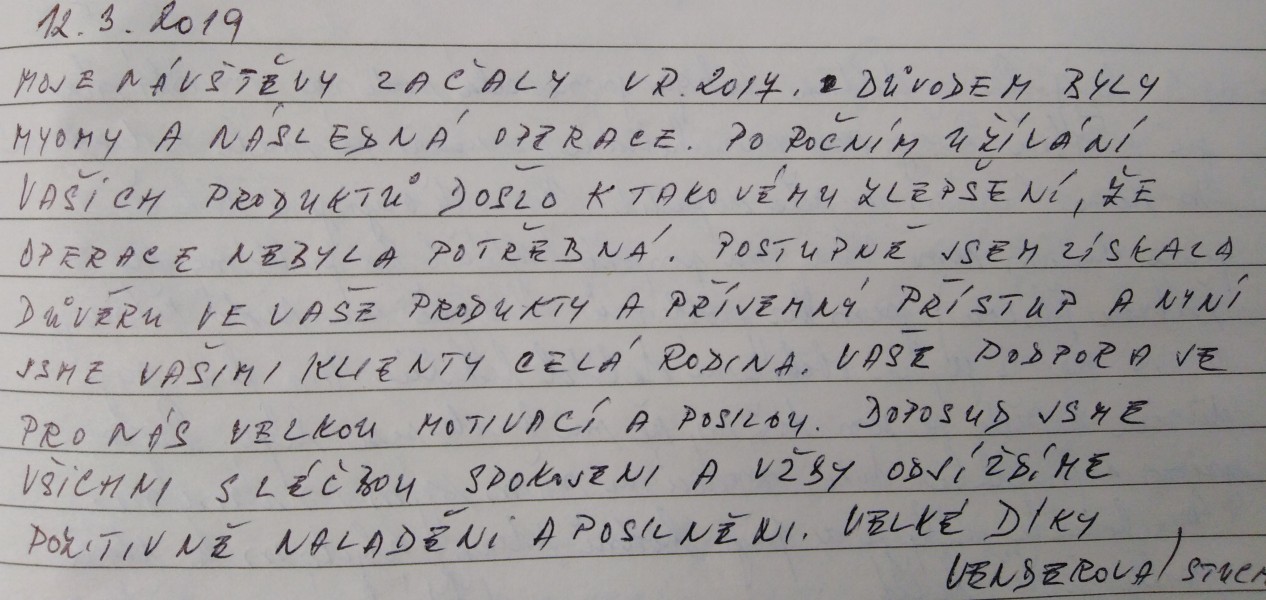 12.3.2019
MOJE NÁVŠTĚVY ZAČALY V R. 2017. DŮVODEM BYLY
MYOMY A NÁSLEDNÁ OPERACE. PO ROČNÍM UŽÍVÁNÍ
VAŠICH PRODUKTŮ DOŠLO K TAKOVÉMU ZLEPŠENÍ, ŽE
OPERACE NEBYLA POTŘEBNÁ. POSTUPNĚ JSEM ZÍSKALA
DŮVĚRU VE VAŠE PRODUKTY A PŘÍJEMNÝ PŘÍSTUP A NYNÍ
JSME VAŠIMI KLIENTY CELÁ RODINA. VAŠE PODPORA JE
PRO NÁS VELKOU MOTIVACÍ A POSILOU. DOPOSUD JSME
VŠICHNI S LÉČBOU SPOKOJENI A VŽDY ODJÍŽDÍME
POZITIVNĚ NALADĚNI A POSILNĚNI. VELKÉ DÍKY
VENDEROVÁ